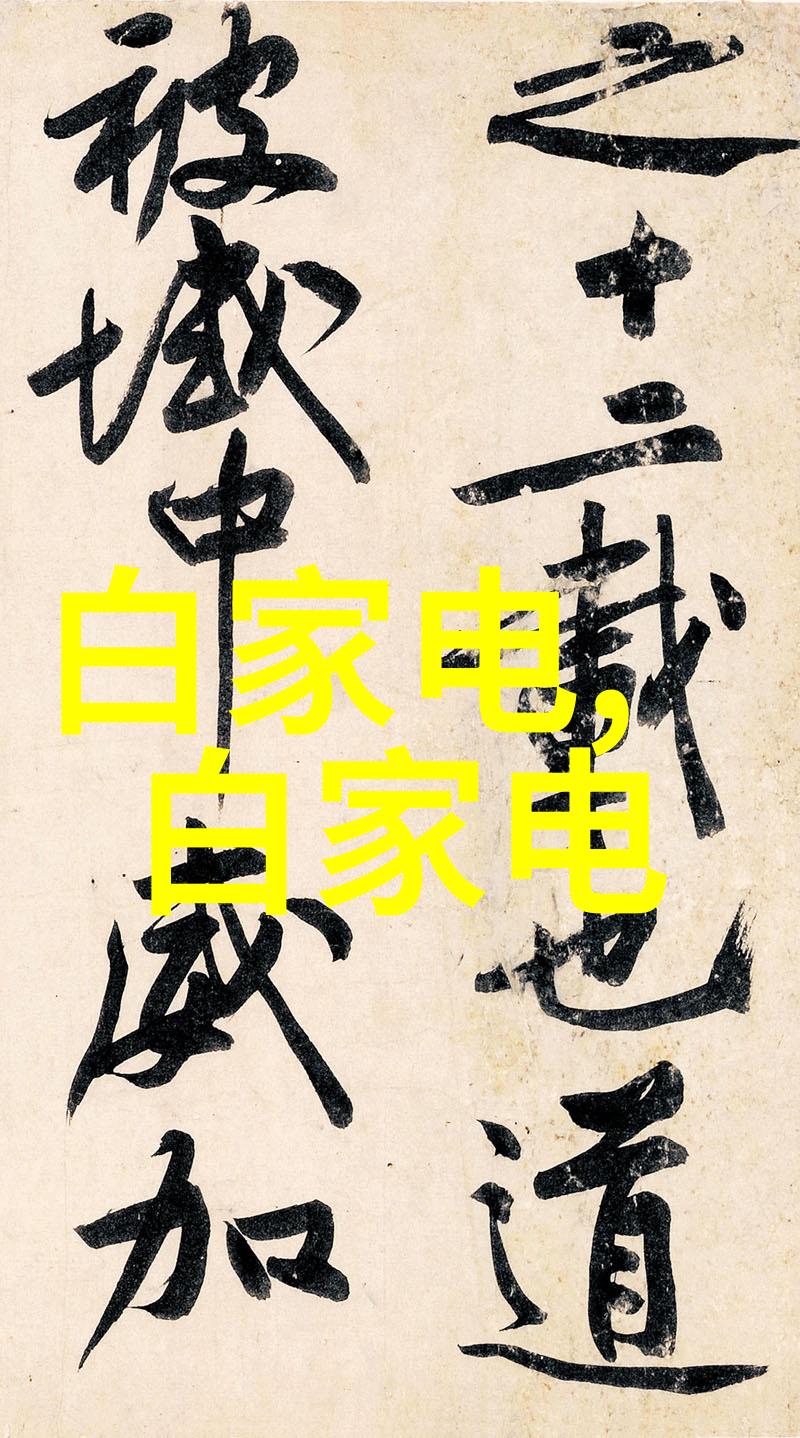 之十二載也道
被域中威加
白家电,
白家电